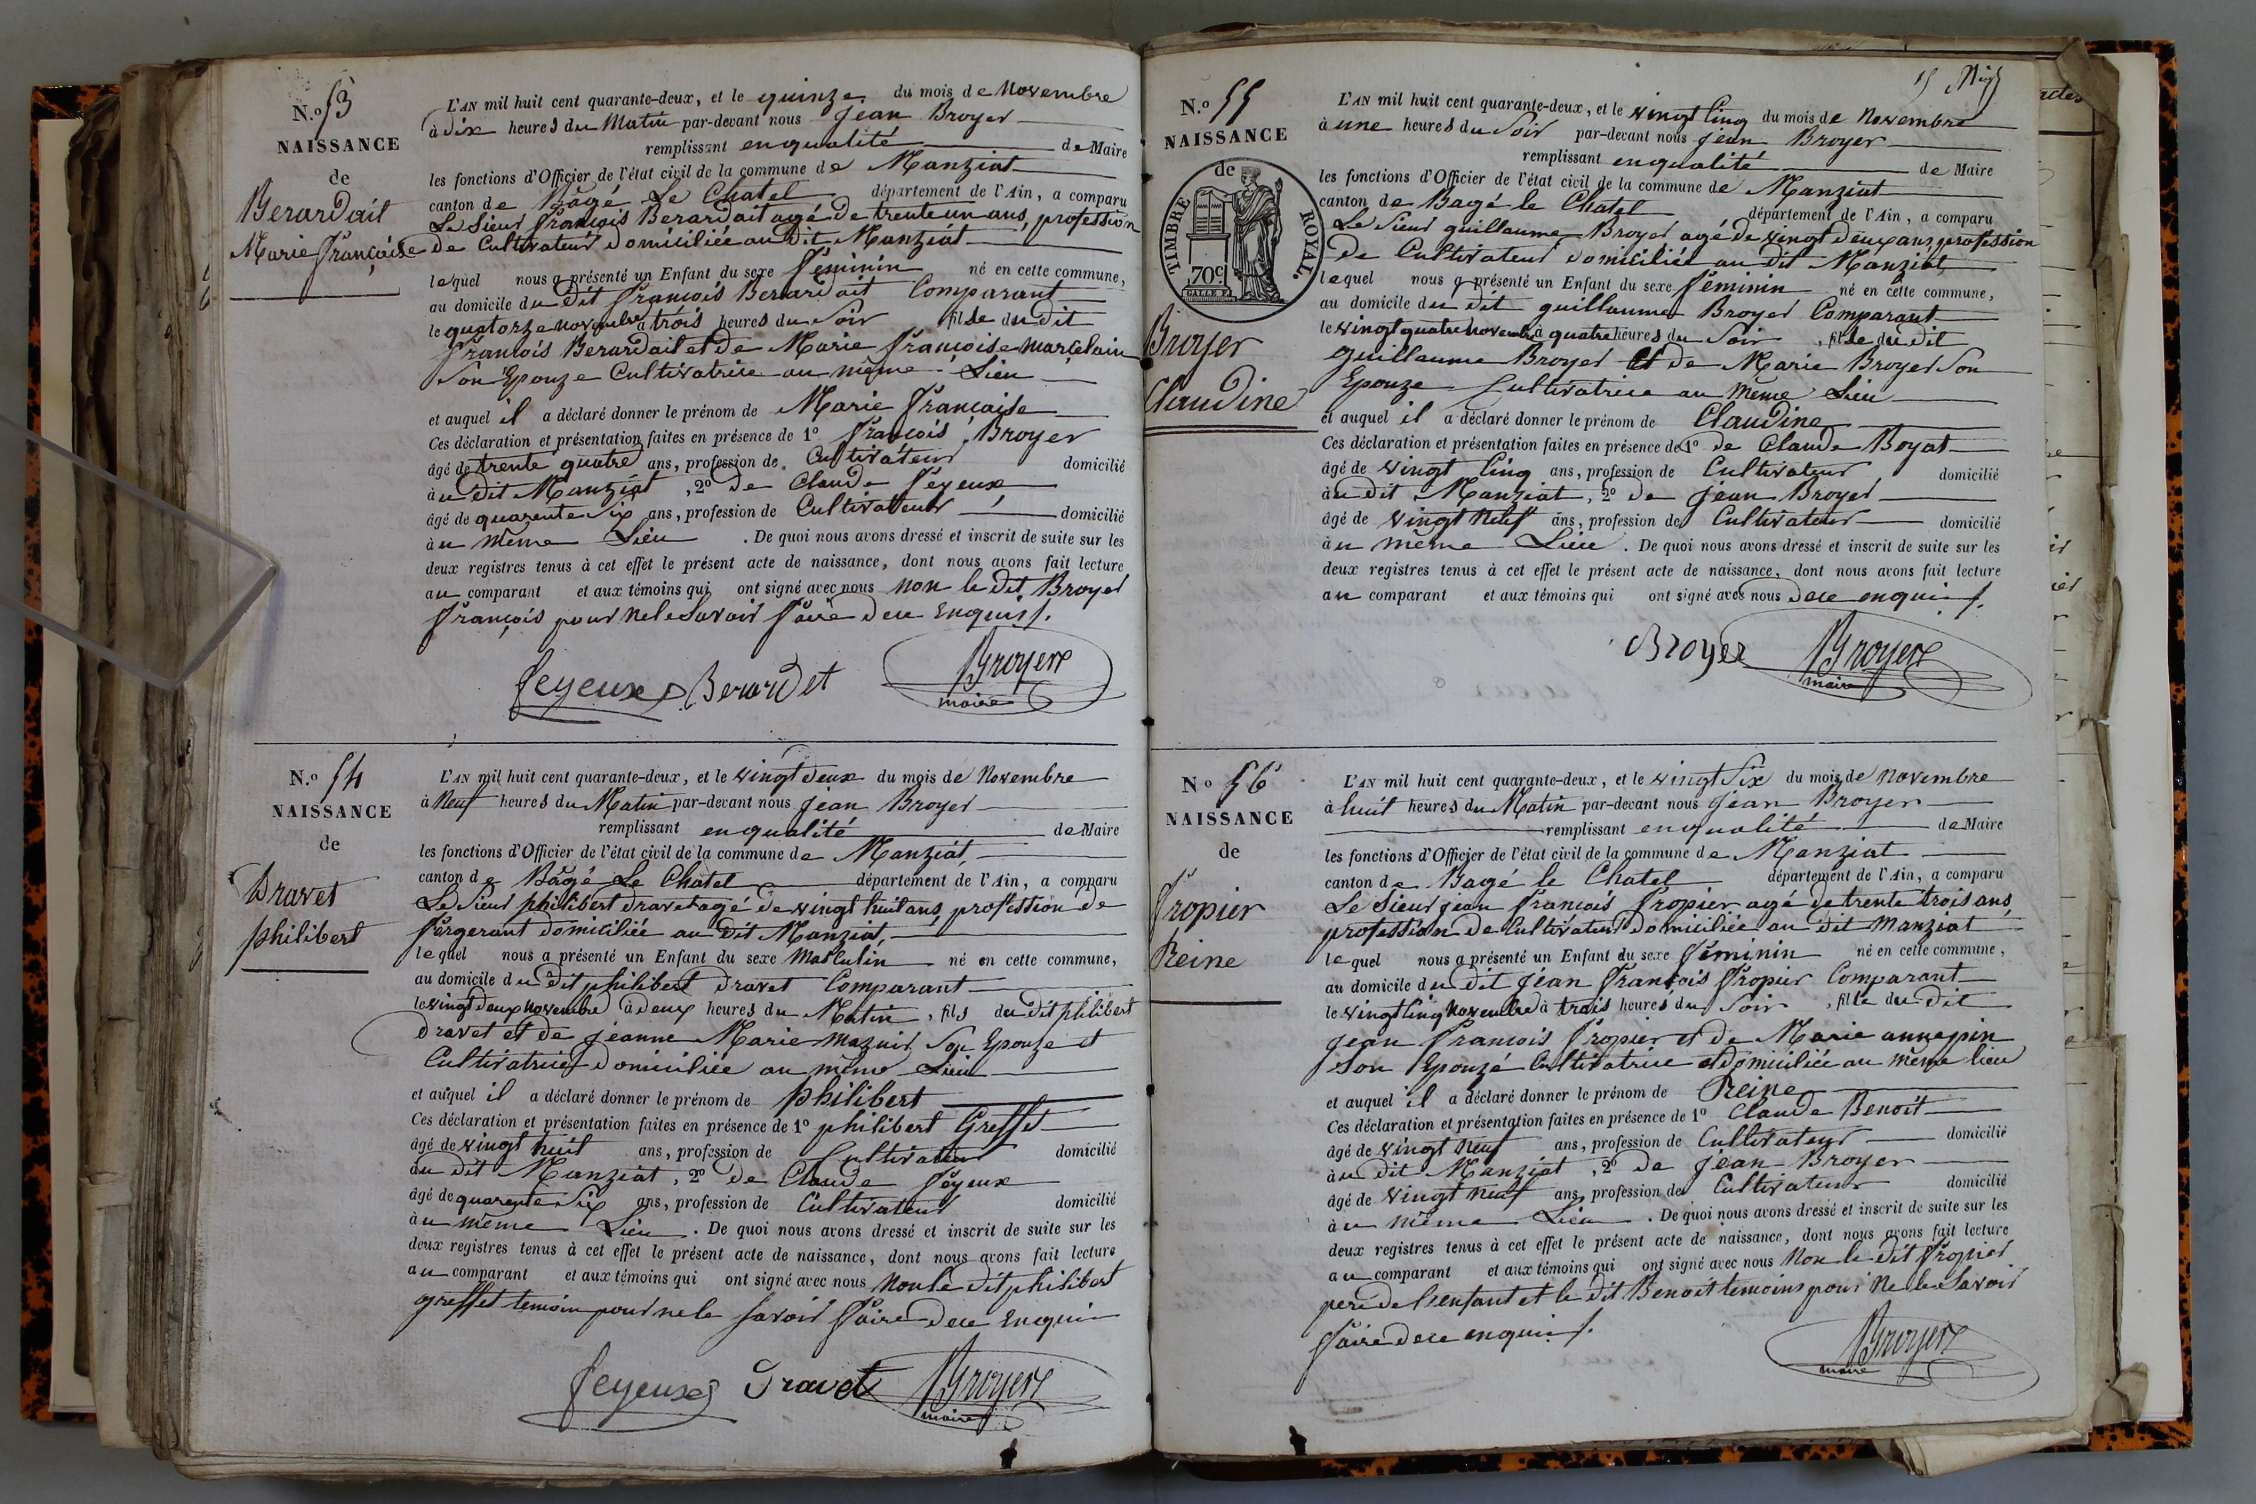 N.o 53
NAISSANCE
de
Berardait
Marie françoise
L'AN mil huit cent quarante-deux, et le quinze du mois de Novembre
à dix heures du Matin par-devant nous Jean Broyer
remplissant en qualité de Maire
les fonctions d'Officier de l'état civil de la commune de Manziat
canton de Bâgé Le Chatel département de l'Ain, a comparu
Le Sieur françois Berardait agé de trente un ans, profession
de Cultivateur domiciliée au dit Manziat
lequel nous a présenté un Enfant du sexe féminin né en cette commune,
au domicile du dit françois Berardait Comparant
le quatorze novembre à trois heures du Soir fille du dit
françois Berardait et de Marie françoise marcelain
Son Epouze Cultivatrice au même Lieu
et auquel il a déclaré donner le prénom de Marie françoise
Ces déclaration et présentation faites en présence de 1o françois Broyer
âgé de trente quatre ans, profession de Cultivateur domicilié
au dit Manziat, 2o de Claude feyeux
âgé de quarente Six ans, profession de Cultivateur domicilié
au même Lieu. De quoi nous avons dressé et inscrit de suite sur les
deux registres tenus à cet effet le présent acte de naissance, dont nous avons fait lecture
au comparant et aux témoins qui ont signé avec nous non le dit Broyer
françois pour ne le Savoir faire dece Enquis
feyeux Berardet Broyer
maire
N.o 54
NAISSANCE
de
Dravet
philibert
L'AN mil huit cent quarante-deux, et le vingt deux du mois de Novembre
à Neuf heures du Matin par-devant nous jean Broyer
remplissant en qualité de Maire
les fonctions d'Officier de l'état civil de la commune de Manziat
canton de Bâgé Le Châtel département de l'Ain, a comparu
Le Sieur philibert dravet agé de vingt huit ans profession de
fargerant domiciliée au dit Manziat,
lequel nous a présenté un Enfant du sexe Masculin né en cette commune,
au domicile du dit philibert dravet Comparant
le vingt deux novembre à deux heures du Matin, fils du dit philibert
dravet et de jeanne Marie maznir Son Epouze et
Cultivatrice domiciliée au même Lieu
et auquel il a déclaré donner le prénom de philibert
Ces déclaration et présentation faites en présence de 1o philibert Greffet
âgé de vingt huit ans, profession de Cultivateur domicilié
au dit Manziat, 2o de Claude feyeux
âgé de quarente Six ans, profession de Cultivateur domicilié
au même Lieu. De quoi nous avons dressé et inscrit de suite sur les
deux registres tenus à cet effet le présent acte de naissance, dont nous avons fait lecture
au comparant et aux témoins qui ont signé avec nous Non le dit philibert
greffet temoin pour ne le Savoir faire dece Enquis
feyeux Dravet Broyer
maire
N.o 55
NAISSANCE
de
TIMBRE ROYAL.
70c.
Broyer
Claudine
L'AN mil huit cent quarante-deux, et le vingt Cinq du mois de Novembre
à une heures du Soir par-devant nous jean Broyer
remplissant en qualité de Maire
les fonctions d'Officier de l'état civil de la commune de Manziat
canton de Bagé le Chatel département de l'Ain, a comparu
Le Sieur guillaume Broyer agé de vingt deux ans, profession
de Cultivateur domiciliée au dit Manziat
lequel nous a présenté un Enfant du sexe féminin né en cette commune,
au domicile du dit guillaume Broyer Comparant
le vingt quatre novembre à quatre heures du Soir, fille du dit
guillaume Broyer et de Marie Broyer Son
Epouze Cultivatrice au même Lieu
et auquel il a déclaré donner le prénom de Claudine
Ces déclaration et présentation faites en présence de 1o de Claude Boyat
âgé de vingt Cinq ans, profession de Cultivateur domicilié
au dit Manziat, 2o de jean Broyer
âgé de vingt Neuf ans, profession de Cultivateur domicilié
au même Lieu. De quoi nous avons dressé et inscrit de suite sur les
deux registres tenus à cet effet le présent acte de naissance, dont nous avons fait lecture
au comparant et aux témoins qui ont signé avec nous dece enquis
Broyer Broyer
maire
No 56
NAISSANCE
de
fropier
Reine
L'AN mil huit cent quarante-deux, et le vingt Six du mois de novembre
à huit heures du Matin par-devant nous jean Broyer
remplissant en qualité de Maire
les fonctions d'Officier de l'état civil de la commune de Manziat
canton de Bagé le Chatel département de l'Ain, a comparu
Le Sieur jean françois fropier agé de trente trois ans
profession de Cultivateur domiciliée au dit Manziat
lequel nous a présenté un Enfant du sexe féminin né en cette commune,
au domicile du dit jean françois fropier Comparant
le vingt Cinq novembre à trois heures du Soir, fille du dit
jean françois fropier et de Marie anne pin
Son Epouzé Cultivatrice et domiciliée au même lieu
et auquel il a déclaré donner le prénom de Reine
Ces déclaration et présentation faites en présence de 1o Claude Benoit
âgé de vingt Neuf ans, profession de Cultivateur domicilié
au dit Manziat, 2o de jean Broyer
âgé de vingt neuf ans, profession de Cultivateur domicilié
au même Lieu. De quoi nous avons dressé et inscrit de suite sur les
deux registres tenus à cet effet le présent acte de naissance, dont nous avons fait lecture
au comparant et aux témoins qui ont signé avec nous Non le dit fropier
pere de l'enfant et le dit Benoit temoins pour ne le Savoir
faire dece enquis
Broyer
maire